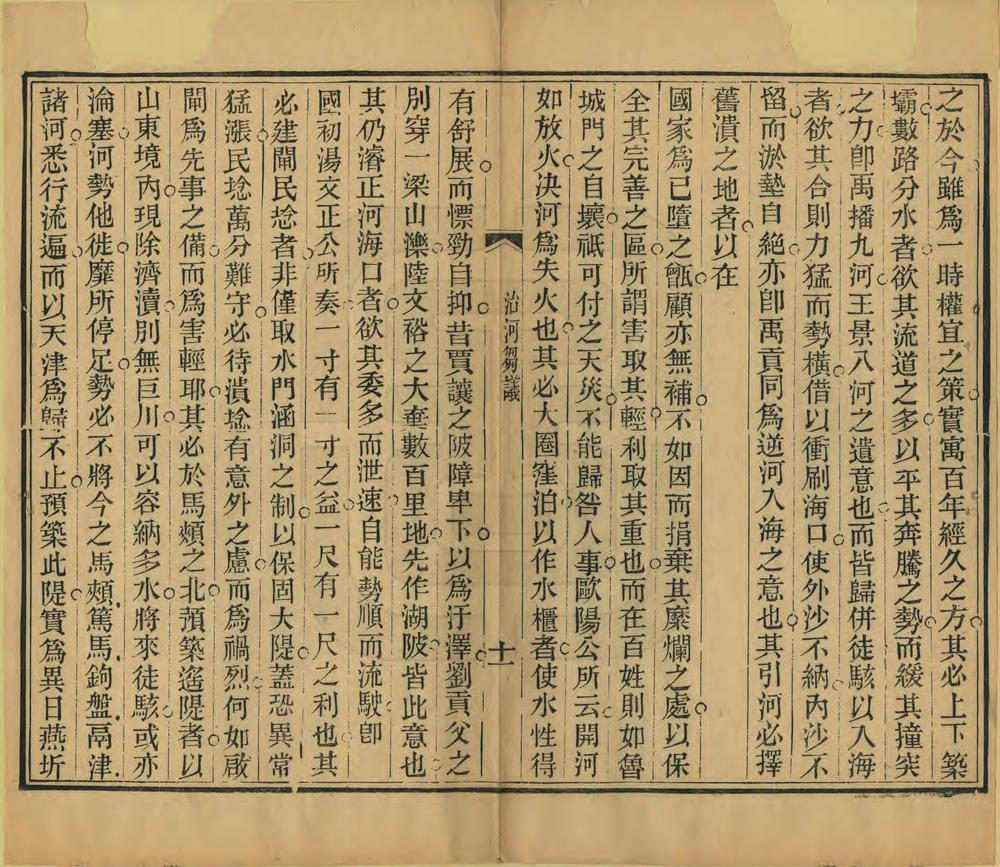 之於今雖爲一時權宜之策實寓百年經久之方其必上下築
壩數路分水者欲其流道之多以平其奔騰之勢而緩其撞突
之力卽禹播九河王景八河之遺意也而皆歸併徒駭以入海
者欲其合則力猛而勢橫借以衝刷海口使外沙不納內沙不
留而淤墊自絕亦卽禹貢同爲逆河入海之意也其引河必擇
舊潰之地者以在
國家爲已墮之甑顧亦無補不如因而捐棄其糜爛之處以保
全其完善之區所謂害取其輕利取其重也而在百姓則如魯
城門之自壞祗可付之天災不能歸咎人事歐陽公所云開河
如放火決河爲失火也其必大圈窪泊以作水櫃者使水性得
治河芻議
十一
有舒展而慓勁自抑昔賈讓之陂障卑下以爲汙澤劉貢父之
別穿一梁山濼陸文裕之大棄數百里地先作湖陂皆此意也
其仍濬正河海口者欲其委多而泄速自能勢順而流駛卽
國初湯文正公所奏一寸有一寸之益一尺有一尺之利也其
必建閘民埝者非僅取水門涵洞之制以保固大隄蓋恐異常
猛漲民埝萬分難守必待潰埝有意外之慮而爲禍烈何如啟
閘爲先事之備而爲害輕耶其必於馬頰之北預築遙隄者以
山東境內現除濟瀆別無巨川可以容納多水將來徒駭或亦
淪塞河勢他徙靡所停足勢必不將今之馬頰篤馬鉤盤鬲津
諸河悉行流遍而以天津爲歸不止預築此隄實爲異日燕圻